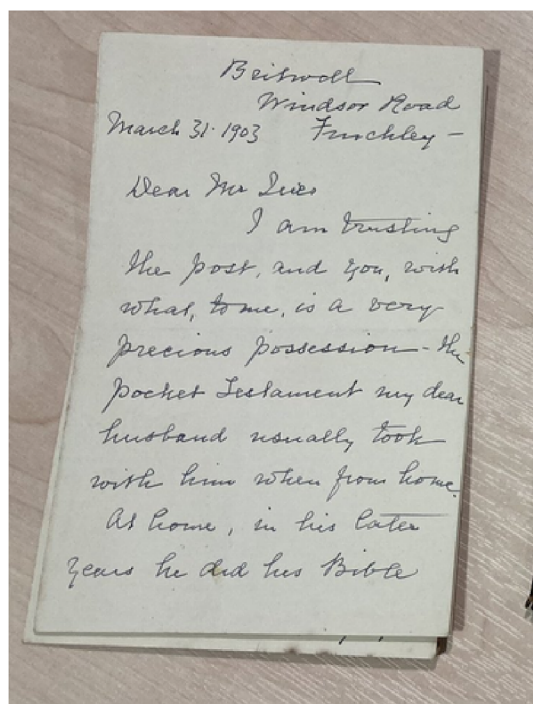 Britwell
Windsor Road
March 31. 1903 Finchley -
Dear Mr
I am trusting
the post, and you, with
what, to me, is a very
precious possession - the
pocket Testament my dear
husband usually took
with him when from home.
At home, in his later
years he did his Bible